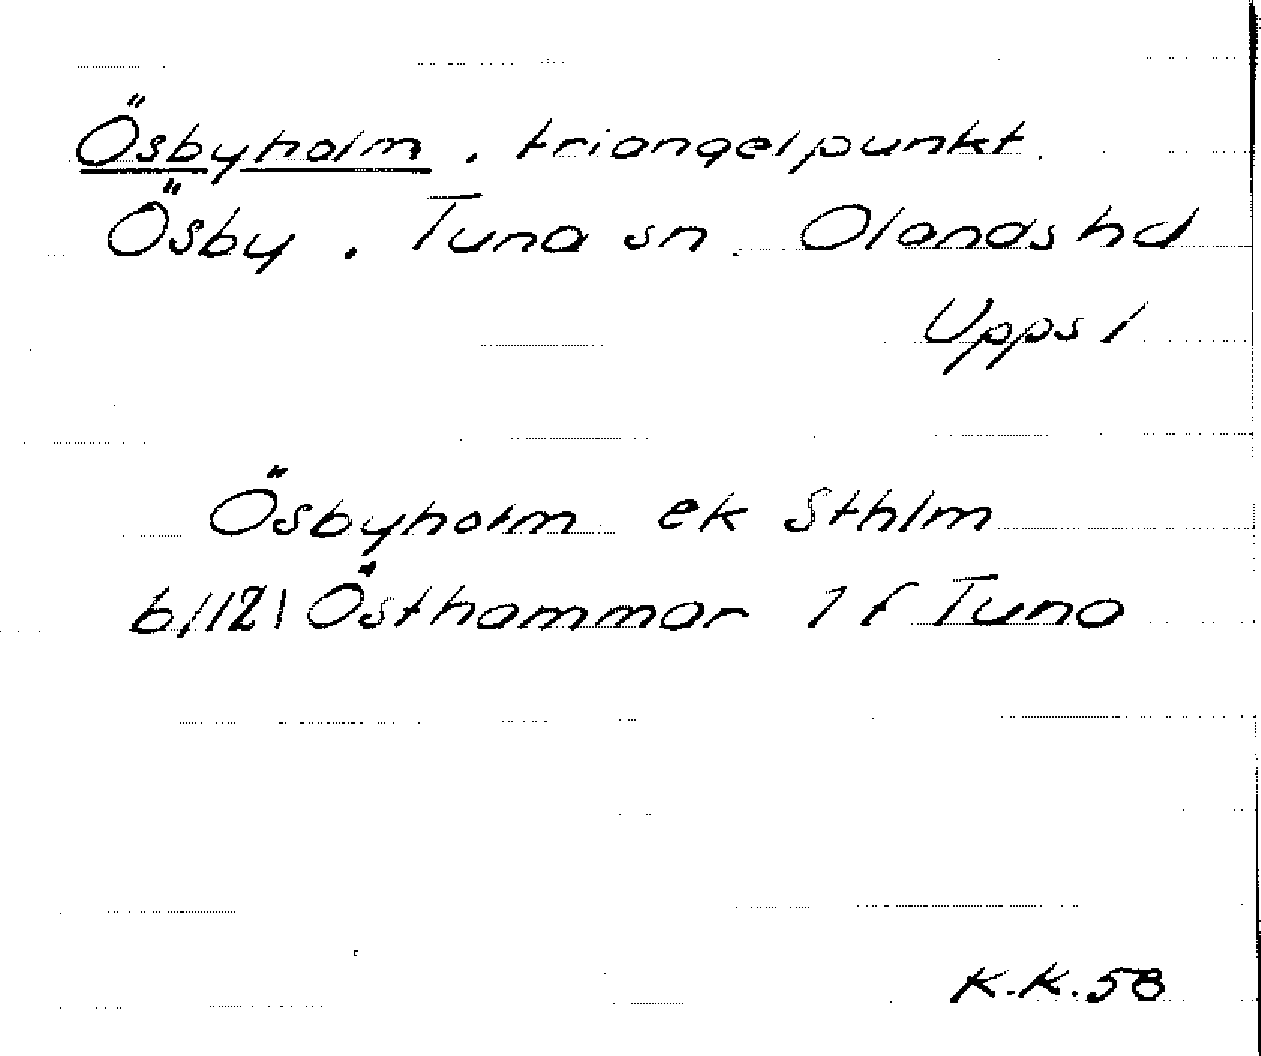 Ösbyholm, triangelpunkt.
Ösby, Tuna sn. Olands hd
Upps l
Ösbyholm ek Sthlm
bl 121 Östhammar 1 f Tuna
K.K.58